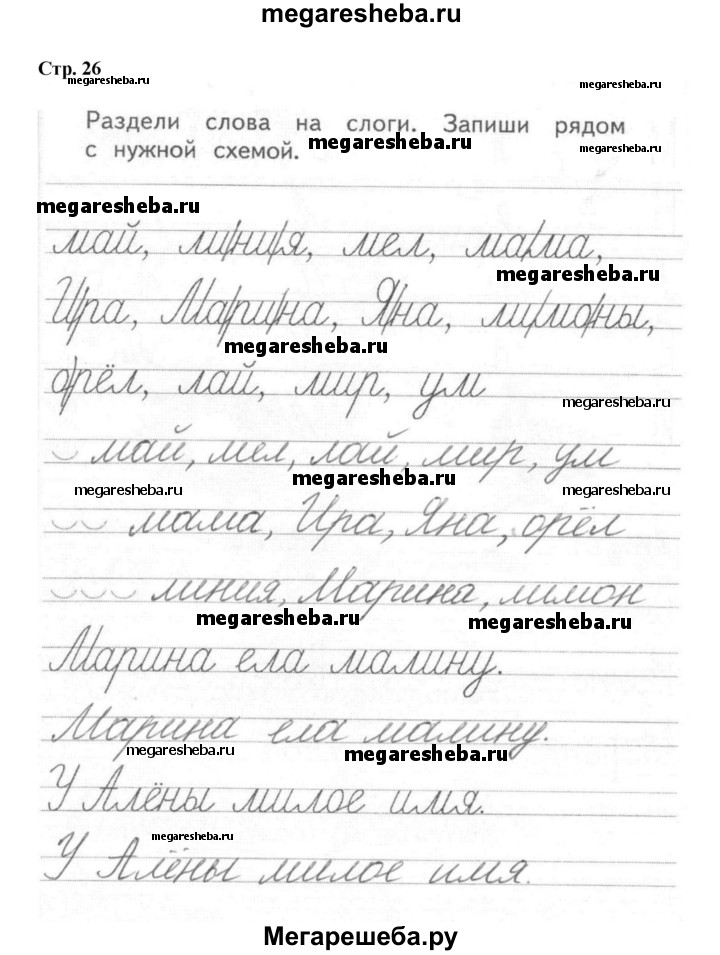 megaresheba.ru
Стр. 26
megaresheba.ru
megaresheba.ru
Раздели слова на слоги. Запиши рядом
с нужной схемой.
megaresheba.ru
megaresheba.ru
megaresheba.ru
май, ли/ни/я, мел, ма/ма,
megaresheba.ru
И/ра, Ма/ри/на, Я/на, ли/мо/ны,
megaresheba.ru
о/рёл, лай, мир, ум
megaresheba.ru
май, мел, лай, мир, ум
megaresheba.ru
megaresheba.ru
megaresheba.ru
мама, Ира, Яна, орёл
линия, Марина, лимон
megaresheba.ru
megaresheba.ru
Марина ела малину.
Марина ела малину.
megaresheba.ru
megaresheba.ru
У Алёны милое имя.
megaresheba.ru
У Алёны милое имя.
Мегарешеба.ру